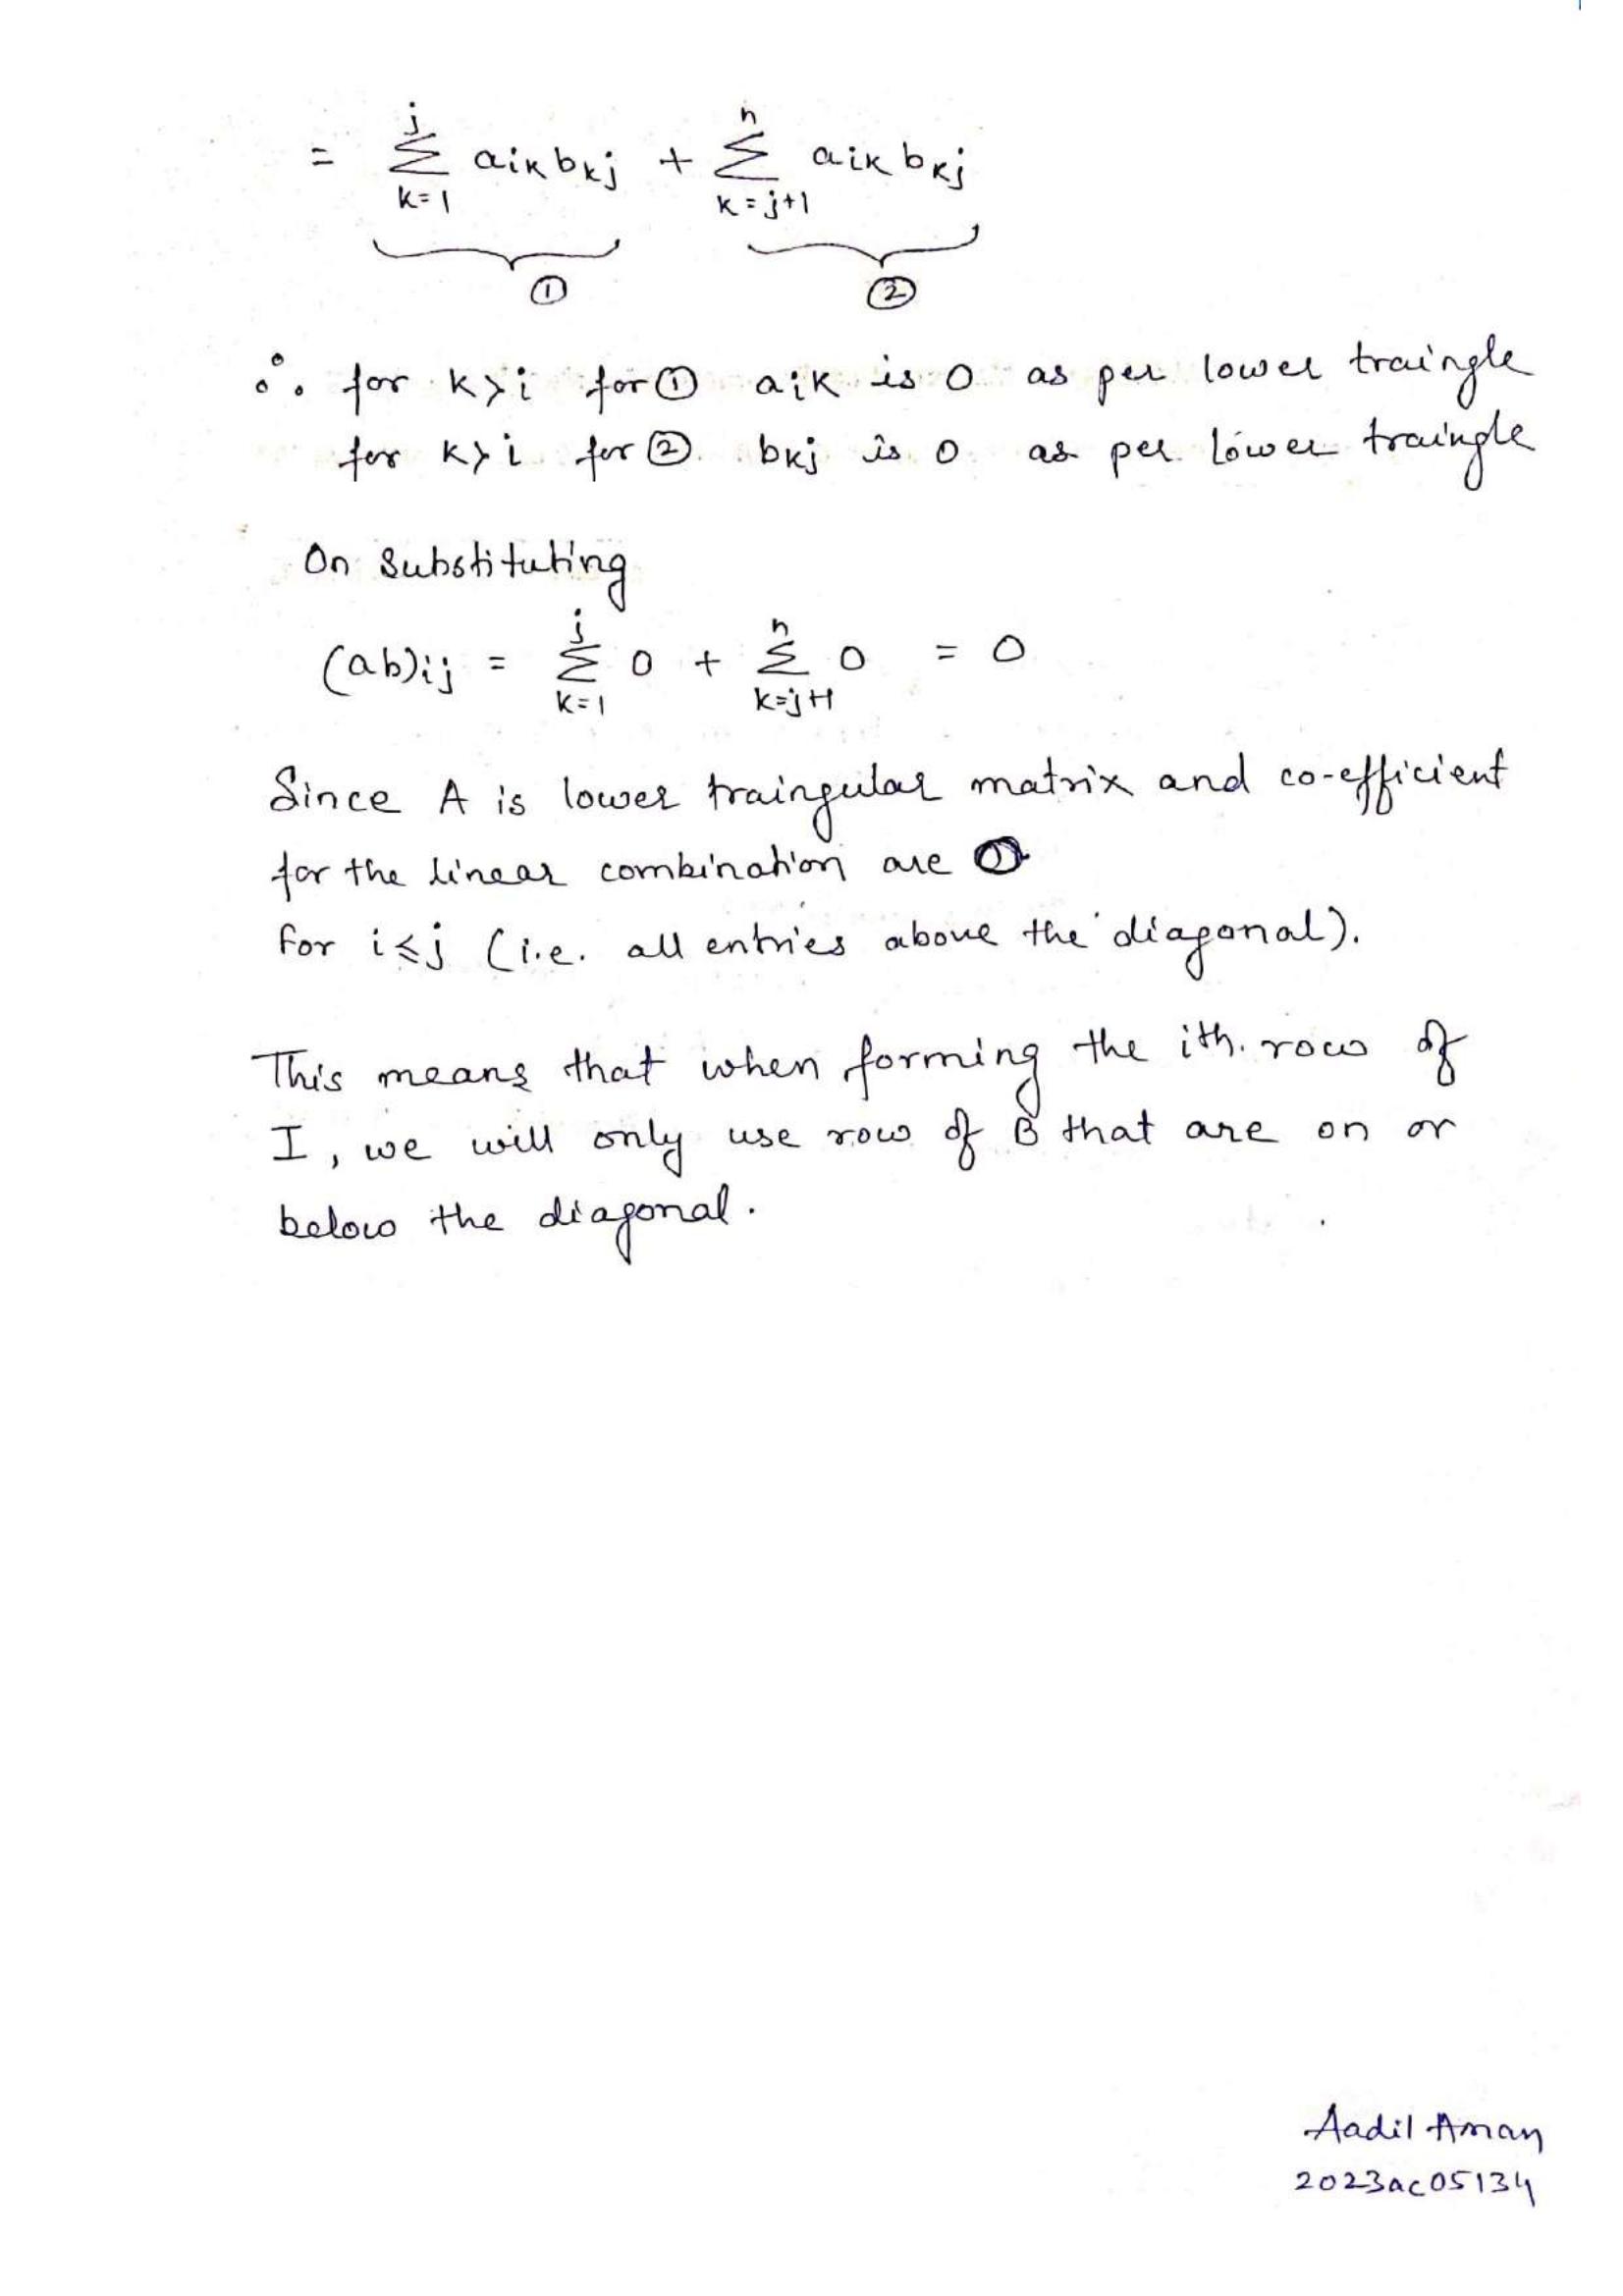 = j∑k=1 aik bkj + n∑k=j+1 aik bkj
① ②
∴ for k>i for ① aik is 0 as per lower traingle
for k>i for ② bkj is 0 as per lower traingle
On Substituting
(ab)ij = j∑k=1 0 + n∑k=j+1 0 = 0
Since A is lower traingular matrix and co-efficient
for the linear combination are 0
for i≤j (i.e. all entries above the diagonal).
This means that when forming the ith. row of
I, we will only use row of B that are on or
below the diagonal.
Aadil Aman
2023ac05134